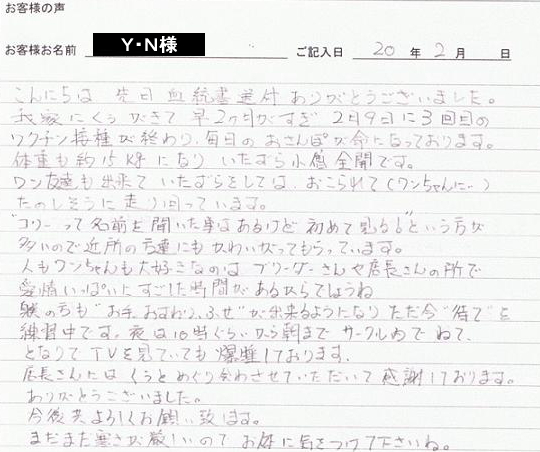 お客様の声
お客様お名前 Y・N様 ご記入日 20 年 2 月 日
こんにちは 先日 血統書送付 ありがとうございました。
我家にくうがきて 早2ヶ月がすぎ 2月9日に3回目の
ワクチン接種が終わり、毎日のおさんぽが命になっております。
体重も約15kgになり いたずら小僧全開です。
ワン友達も出来て いたずらをしては、おこられて(ワンちゃんに…)
たのしそうに走り回っています。
"コリーって名前を聞いた事はあるけど 初めて見る!"という方が
多いので近所の方達にもかわいがってもらっています。
人もワンちゃんも大好きなのは ブリーダーさんや店長さんの所で
愛情いっぱいにすごした時間があるからでしょうね
躾の方も"お手、おすわり、ふせ"が出来るようになり ただ今"待て"を
練習中です。夜は10時ぐらいから朝までサークル内でねて、
となりでTVを見ていても 爆睡しております。
店長さんには くうとめぐり会わさせていただいて 感謝しております。
ありがとうございました。
今後共よろしくお願い致します。
まだまだ寒さが厳しいので お体に気をつけて下さいね。